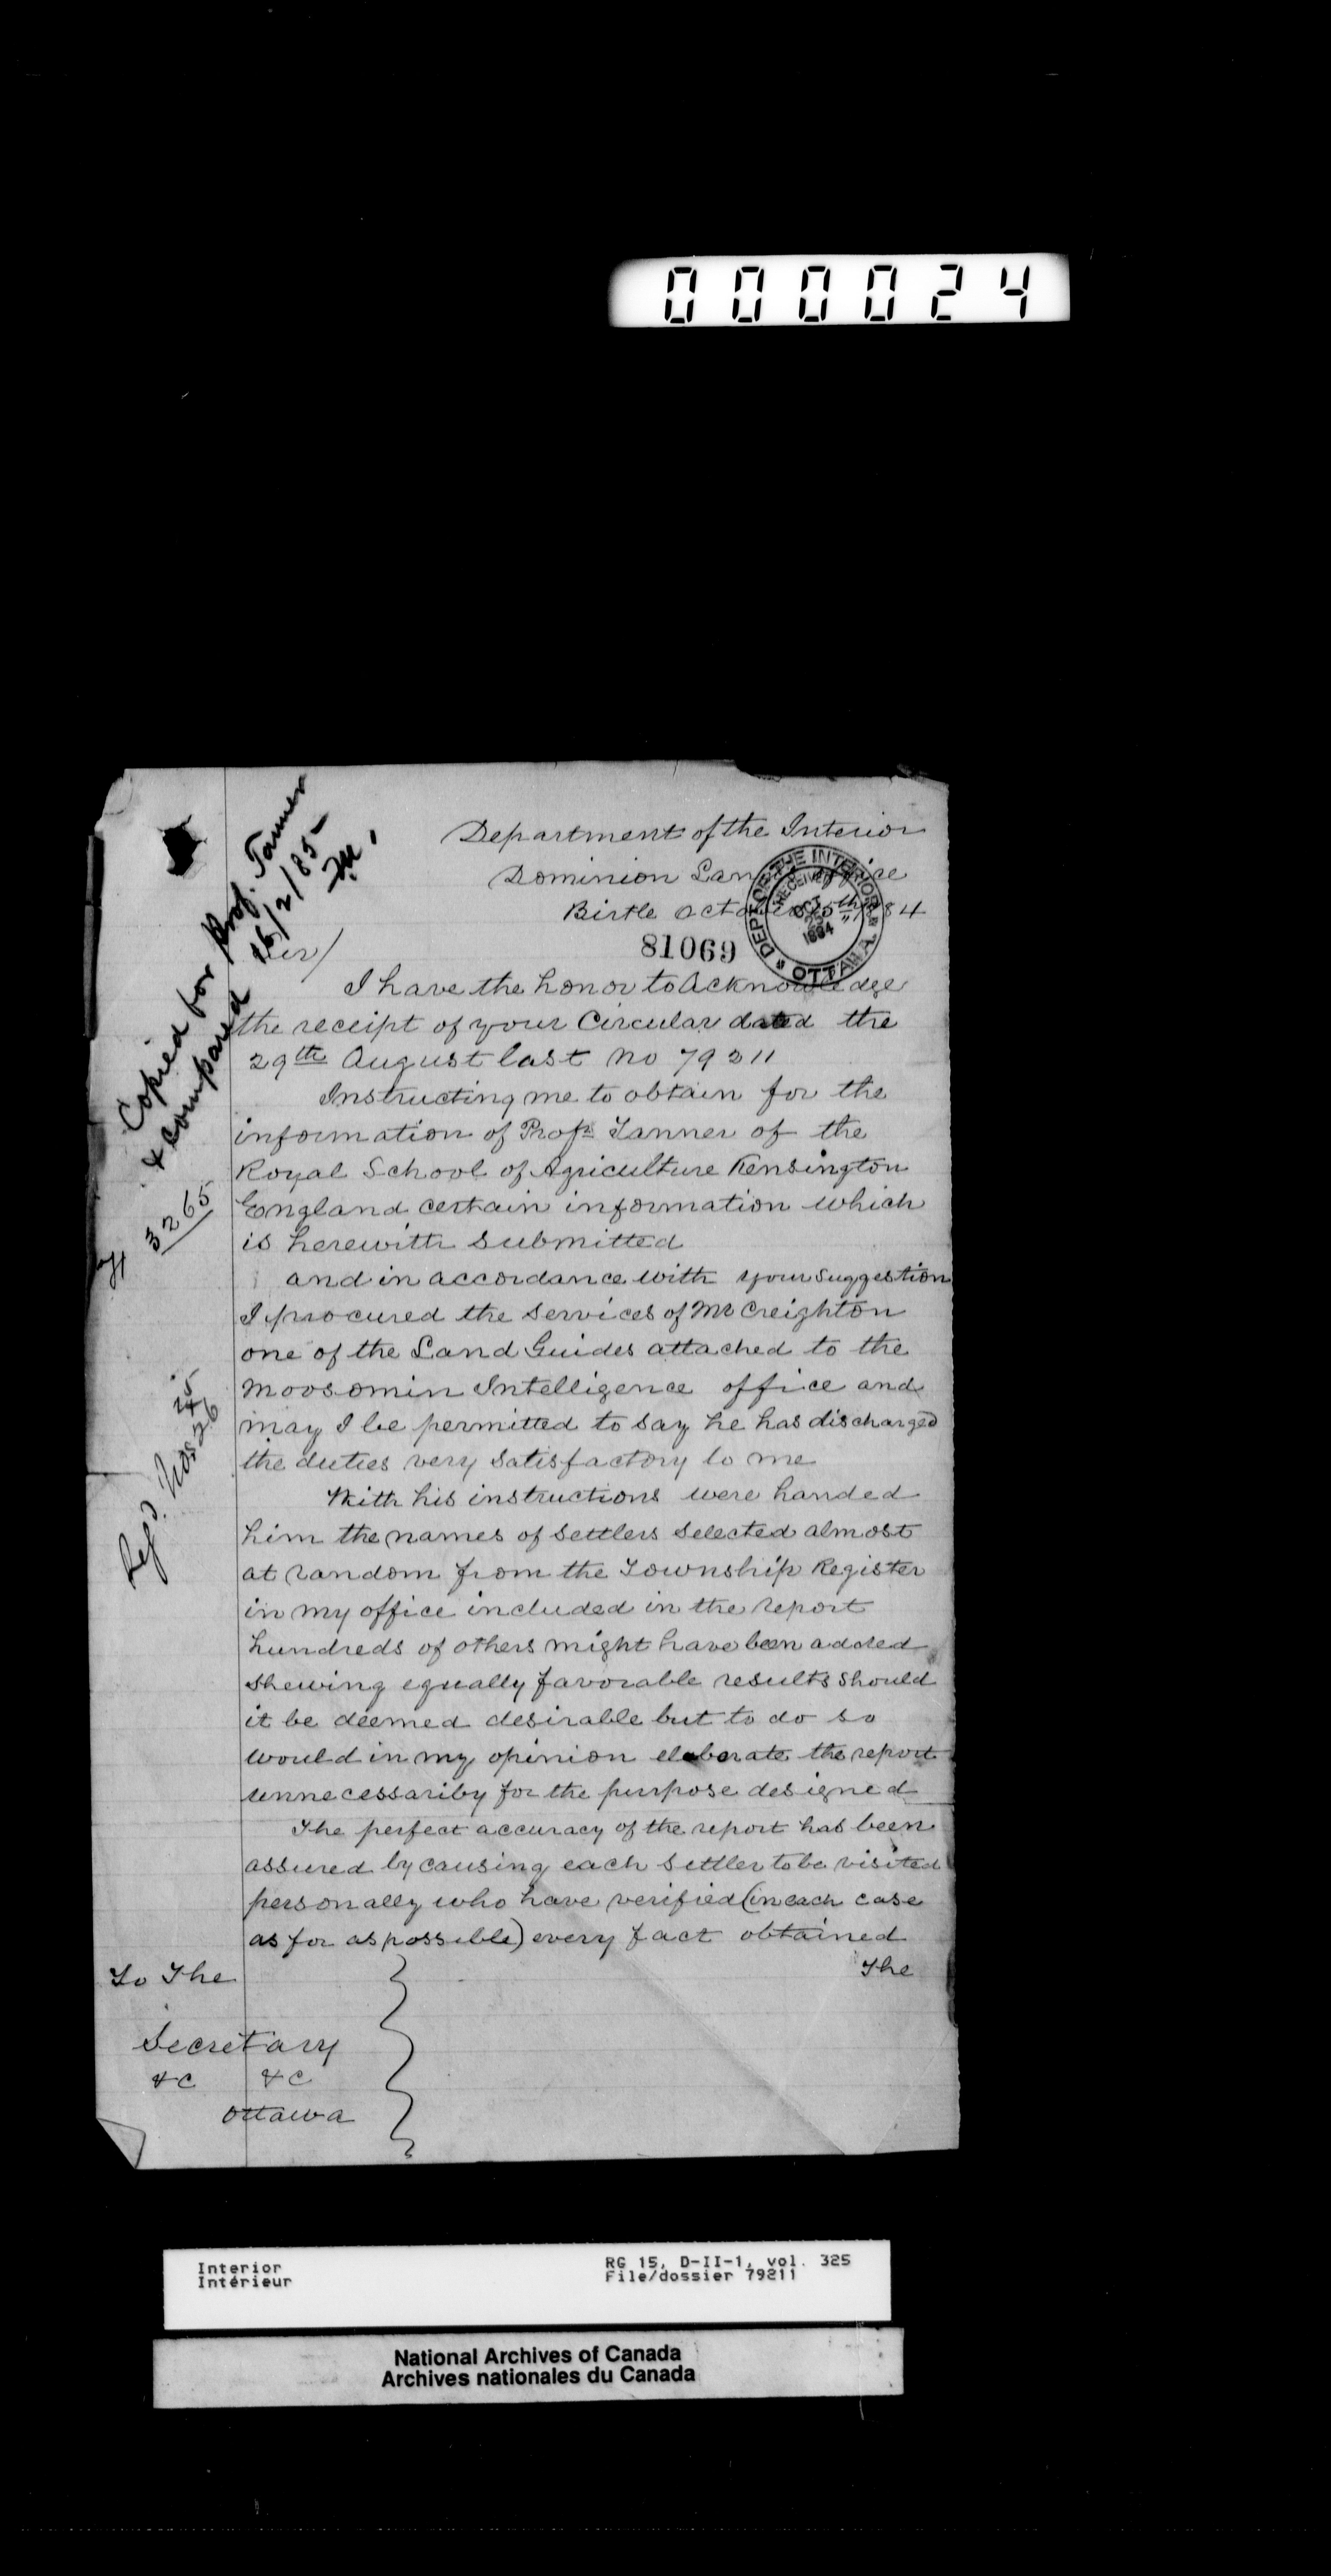 000024
Department of the Interior
Dominion Land Office
Birtle October 15th 1884
DEPT OF THE INTERIOR
RECEIVED
OCT
1884
OTTAWA
81069
Copied for Prof. Tanner
& compared 16/2/85
Sir/
I have the honor to acknowledge
the receipt of your Circular dated the
29th August last No 79211
Instructing me to obtain for the
information of Profr Tanner of the
Royal School of Agriculture Kensington
England certain information which
is herewith submitted
and in accordance with your suggestion
I procured the services of Mr Creighton
one of the Land Guides attached to the
Moosomin Intelligence office and
may I be permitted to say he has discharged
the duties very satisfactory to me
With his instructions were handed
him the names of settlers selected almost
at random from the Township Register
in my office included in the report
hundreds of others might have been added
shewing equally favorable results should
it be deemed desirable but to do so
would in my opinion elaborate the report
unnecessariby for the purpose designed
The perfect accuracy of the report has been
assured by causing each settler to be visited
personally who have verified (in each case
as for as possible) every fact obtained
The
3265
Refd. Nos 25
26
To The
Secretary
&c &c
Ottawa
Interior
Intérieur
RG 15, D-II-1, vol. 325
File/dossier 79211
National Archives of Canada
Archives nationales du Canada